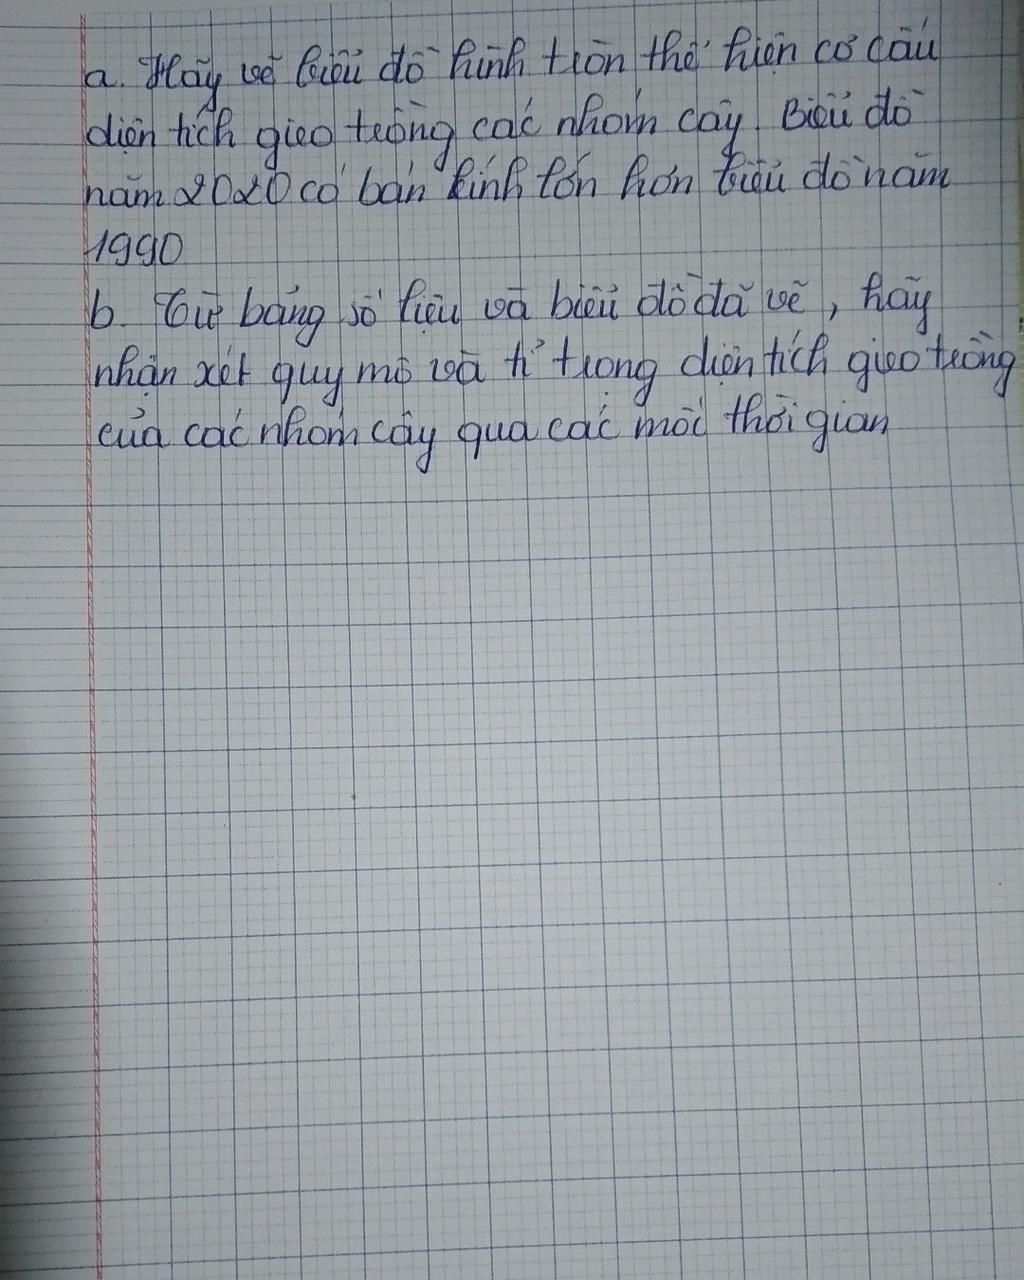 a. Hãy vẽ biểu đồ hình tròn thể hiện cơ cấu
diện tích gieo trồng các nhóm cây. Biểu đồ
năm 2020 có bán kính lớn hơn biểu đồ năm
1990
b. Từ bảng số liệu và biểu đồ đã vẽ, hãy
nhận xét quy mô và tỉ trọng diện tích gieo trồng
của các nhóm cây qua các mốc thời gian